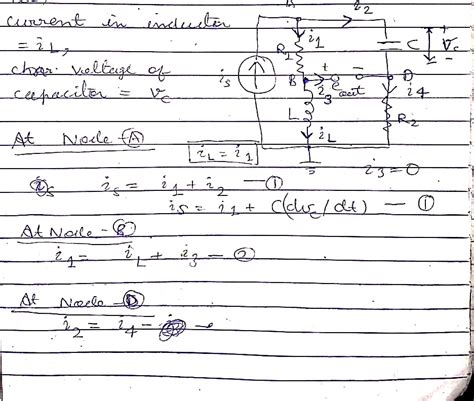 current in inductor
= i_L,
char. voltage of
capacitor = v_c
i_2
i_1
R_1
C
v_c
i_s
B
+
-
D
i_3
out
i_4
L
i_L
R_2
i_L = i_1
i_3 = 0
At Node - A
i_s = i_1 + i_2 — ①
i_s = i_1 + C(dv_c/dt) — ①
At Node - B
i_1 = i_L + i_3 — ②
At Node - D
i_2 = i_4 -